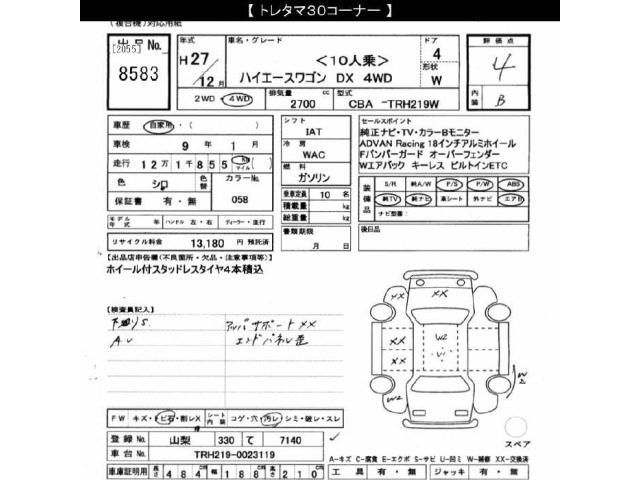 【 トレタマ30コーナー 】
(複合機)対応用紙
出品No. [2055] 8583
年式 H27/12月
車名・グレード <10人乗> ハイエースワゴン DX 4WD
ドア 4
形状 W
評価点 4
内装 B
2WD・4WD
排気量 2700 cc
型式 CBA -TRH219W
車歴 自家用・
車検 9年 1月
走行 12万1千855 Km マイル
色 シロ 色替 カラーNo. 058
保証書 有・無
モデル年式 年 ハンドル 左・右 ディーラー・並行
リサイクル料金 13,180 円 預託済
シフト IAT
冷房 WAC
燃料 ガソリン
乗車定員 10 名
積載量 kg
総重量 kg
書類期限 月 日
セールスポイント
純正ナビ・TV・カラーBモニター
ADVAN Racing 18インチアルミホイール
Fバンパーガード オーバーフェンダー
Wエアバック キーレス ビルトインETC
装備品 S/R 純A/W P/S P/W ABS
純TV 純ナビ 革シート 外ナビ エアB
ナビ型番:
後日品
【出品店申告欄(不良箇所・欠品・注意事項等)】
ホイール付スタッドレスタイヤ4本積込
【検査員記入】
下廻りS
AU
アッパサポートXX
エンドパネル歪
YX XX
XX XX
W2
U1
W2
W
FW キズ・トビ石・割レX シート内装 コゲ・穴・汚レ・シミ・破レ・スレ
登録No. 山梨 330 て 7140
車台No. TRH219-0023119
車庫証明用 長さ 484cm 幅 188cm 高さ 210cm
スペア
A-キズ C-腐食 E-エクボ S-サビ U-凹ミ W-補修 XX-交換済
工具 有・無 ジャッキ 有・無